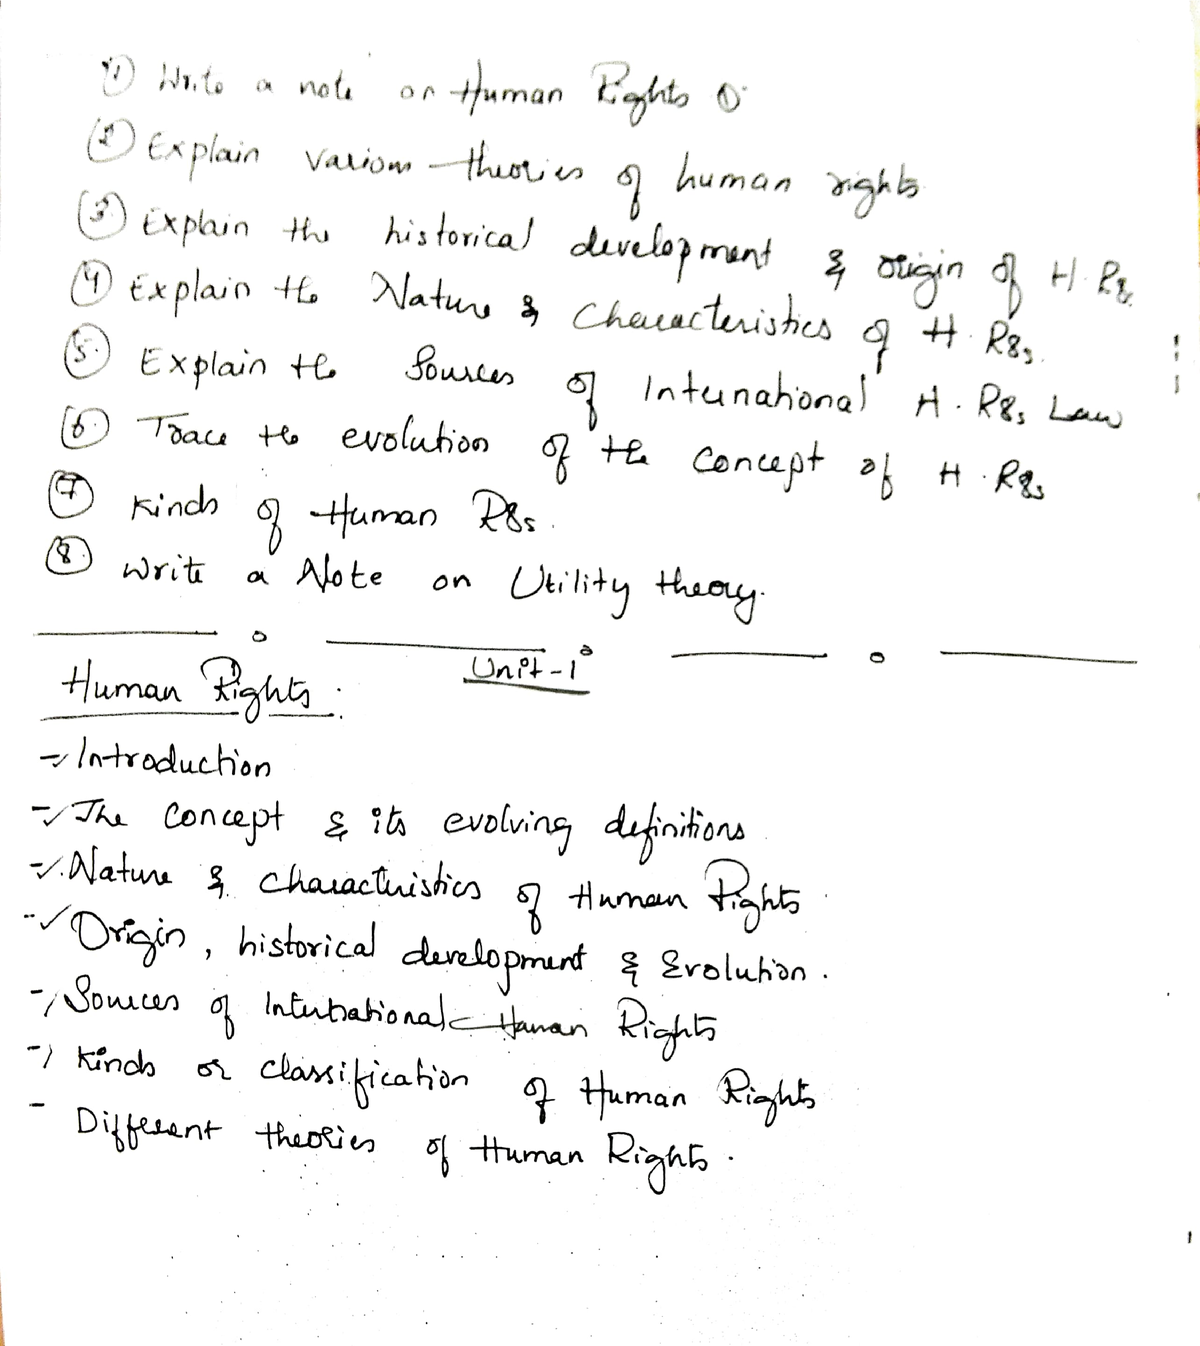 1) Write a note on Human Rights
2) Explain various theories of human rights
3) Explain the historical development & origin of H. Rgs.
4) Explain the Nature & Characteristics of H. Rgs.
5. Explain the Sources of International H. Rgs Law
6. Trace the evolution of the concept of H. Rgs
7 Kinds of Human Rgs.
8. Write a Note on Utility theory.
Unit-1
Human Rights.
- Introduction
- The concept & its evolving definitions
- Nature & characteristics of Human Rights
- Origin, historical development & Evolution.
- Sources of International Human Rights
- Kinds or classification of Human Rights
- Different theories of Human Rights.